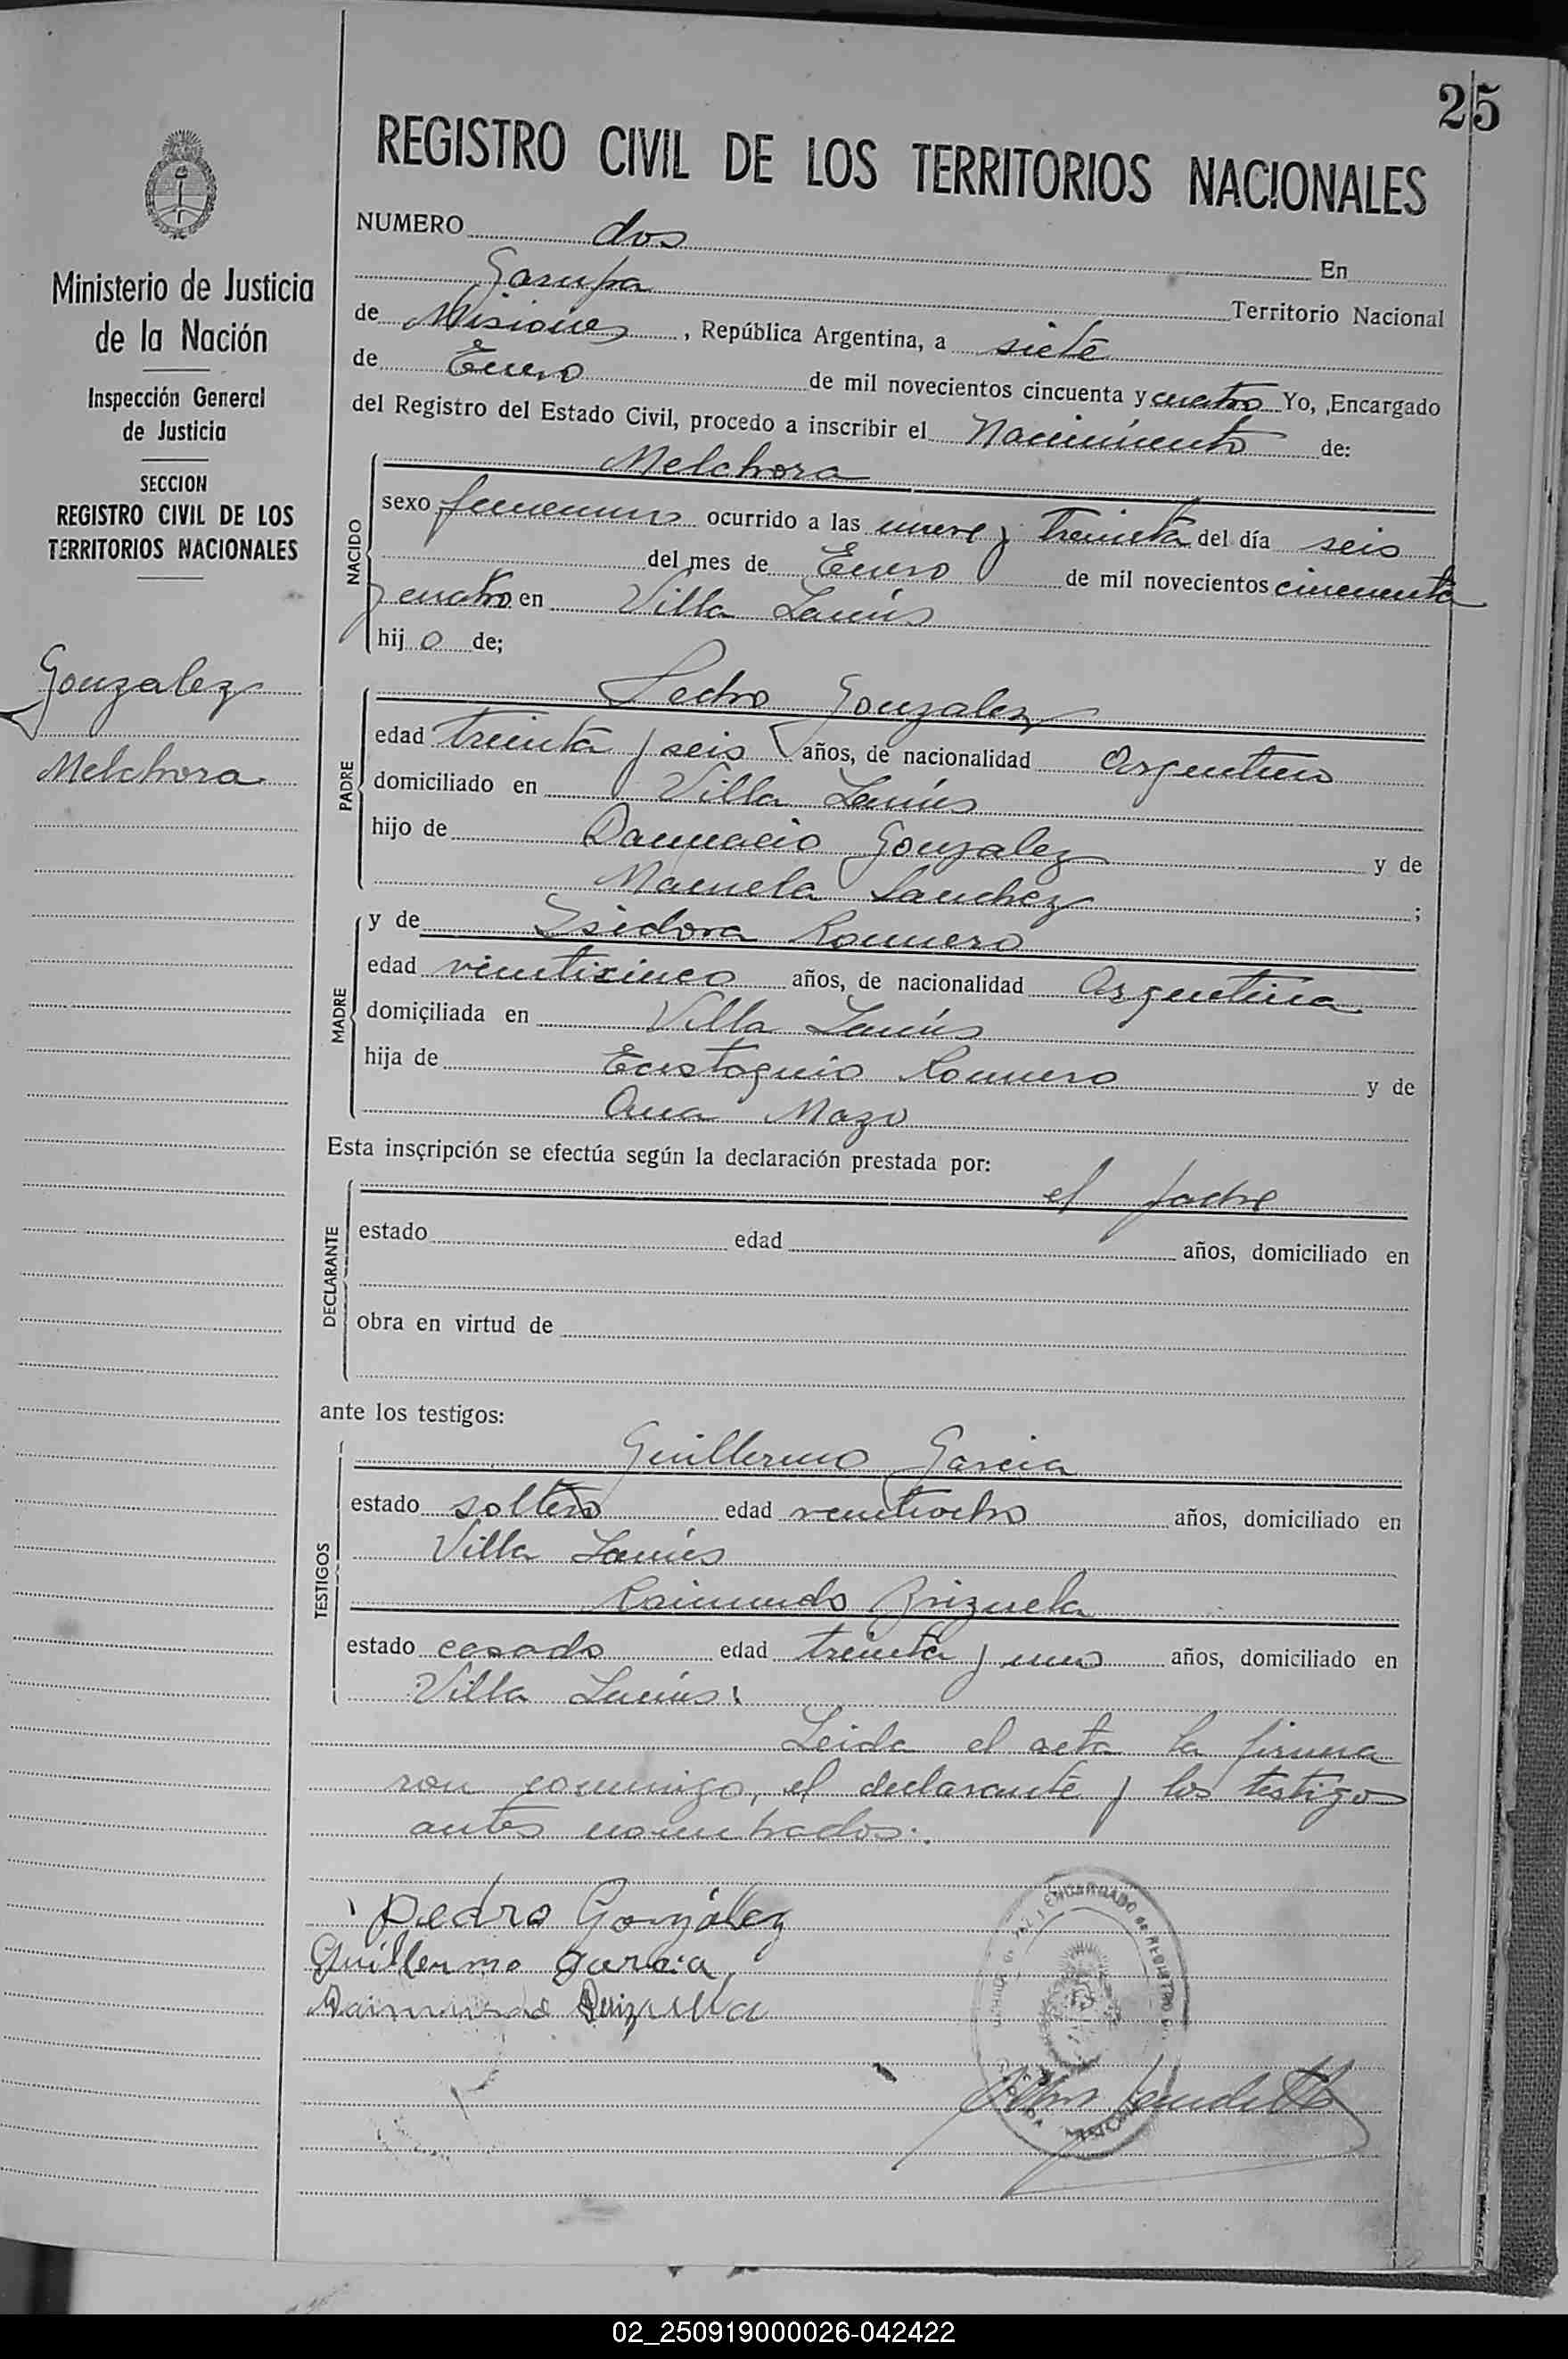 25
REGISTRO CIVIL DE LOS TERRITORIOS NACIONALES
Ministerio de Justicia
de la Nación
Inspección General
de Justicia
SECCION
REGISTRO CIVIL DE LOS
TERRITORIOS NACIONALES
Gonzalez
Melchora
NUMERO dos En
Garupa Territorio Nacional
de Misiones, República Argentina, a siete
de Enero de mil novecientos cincuenta y cuatro Yo, Encargado
del Registro del Estado Civil, procedo a inscribir el Nacimiento de:
NACIDO
Melchora
sexo femenino ocurrido a las nueve y treinta del día seis
del mes de Enero de mil novecientos cincuenta
y cuatro en Villa Lanús
hij o de;
PADRE
Pedro Gonzalez
edad treinta y seis años, de nacionalidad Argentino
domiciliado en Villa Lanús
hijo de Gonzalez y de
Manuela Sanchez ;
MADRE
y de Isidora Romero
edad veinticinco años, de nacionalidad Argentina
domiciliada en Villa Lanús
hija de Eustaquio Romero y de
Ana Mazo
Esta inscripción se efectúa según la declaración prestada por:
DECLARANTE
el padre
estado edad años, domiciliado en
obra en virtud de
ante los testigos:
TESTIGOS
Guillermo Garcia
estado soltero edad veintiocho años, domiciliado en
Villa Lanús
Raimundo Brizuela
estado casado edad treinta y uno años, domiciliado en
Villa Lanús.
Leida el acta la firma
ron conmigo, el declarante y los testigos
antes nombrados.
Pedro González
Guillermo Garcia
Raimundo Brizuela
ENCARGADO de REGISTRO
02_250919000026-042422